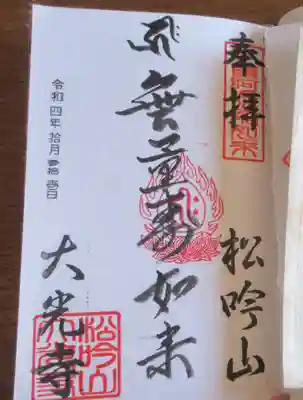 奉拝
松吟山
無量壽如来
令和四年拾月参拾壱日
大光寺